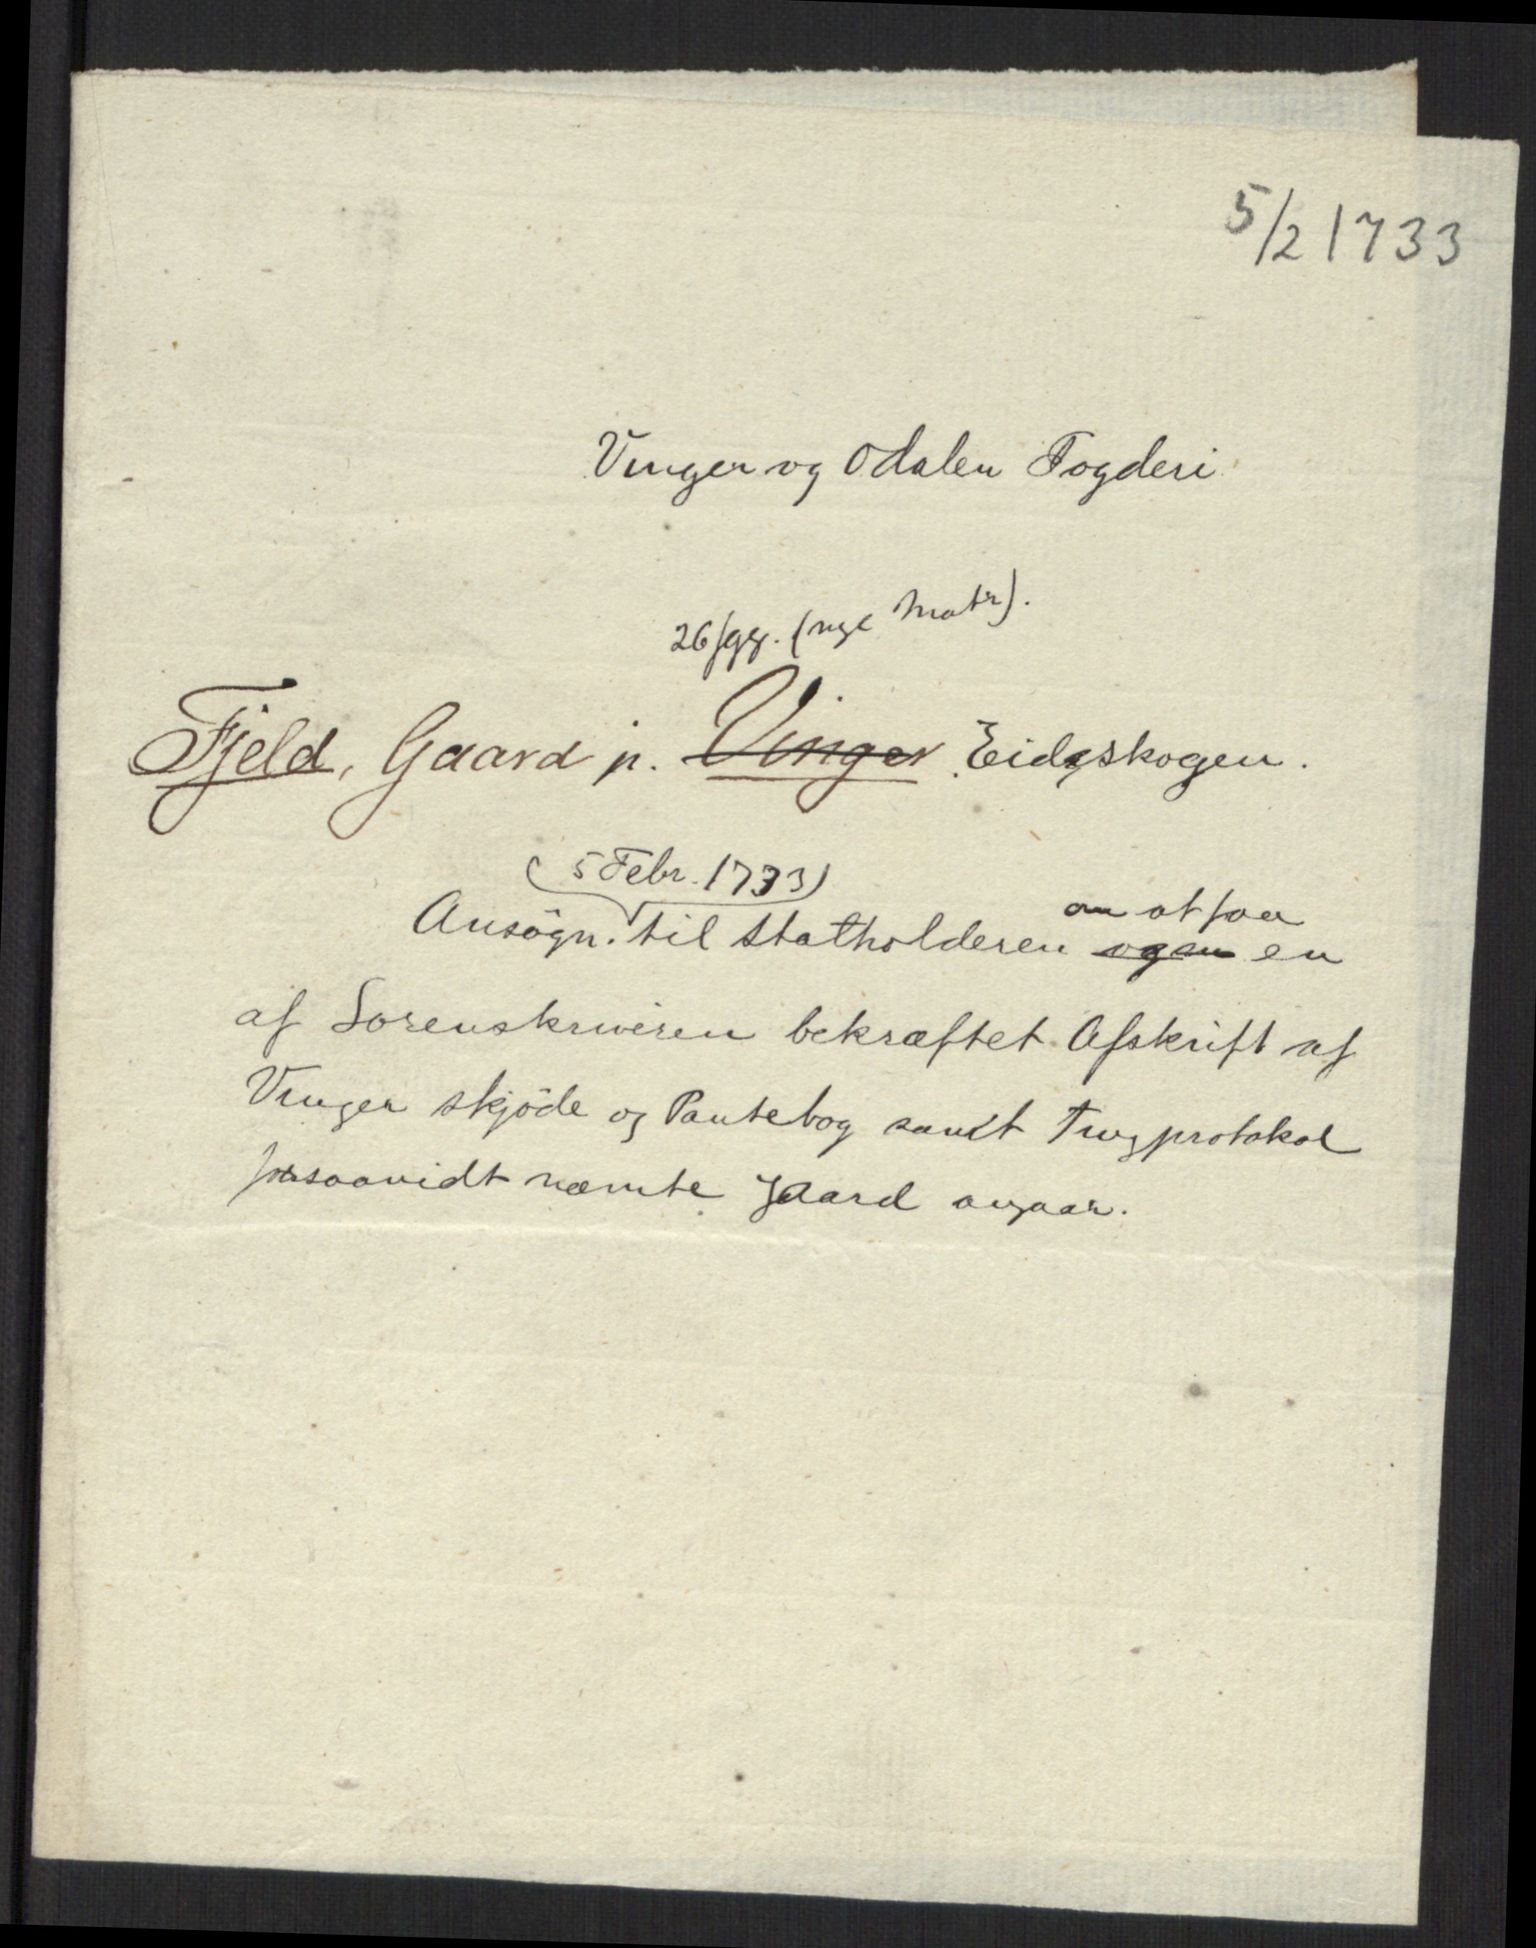 5/2 1733
Vinger og Odalen Fogderi
26 fgg. (nye Matr).
Fjeld, Gaard p. Vinger Eidsskogen.
(5 Febr. 1733)
om at faa
Ansögn. til Statholderen og om en
af Sorenskriveren bekræftet Afskrift af
Vinger skjöde og Pantebog samt Tingprotokol
forsaavidt nævnte Gaard angaar.